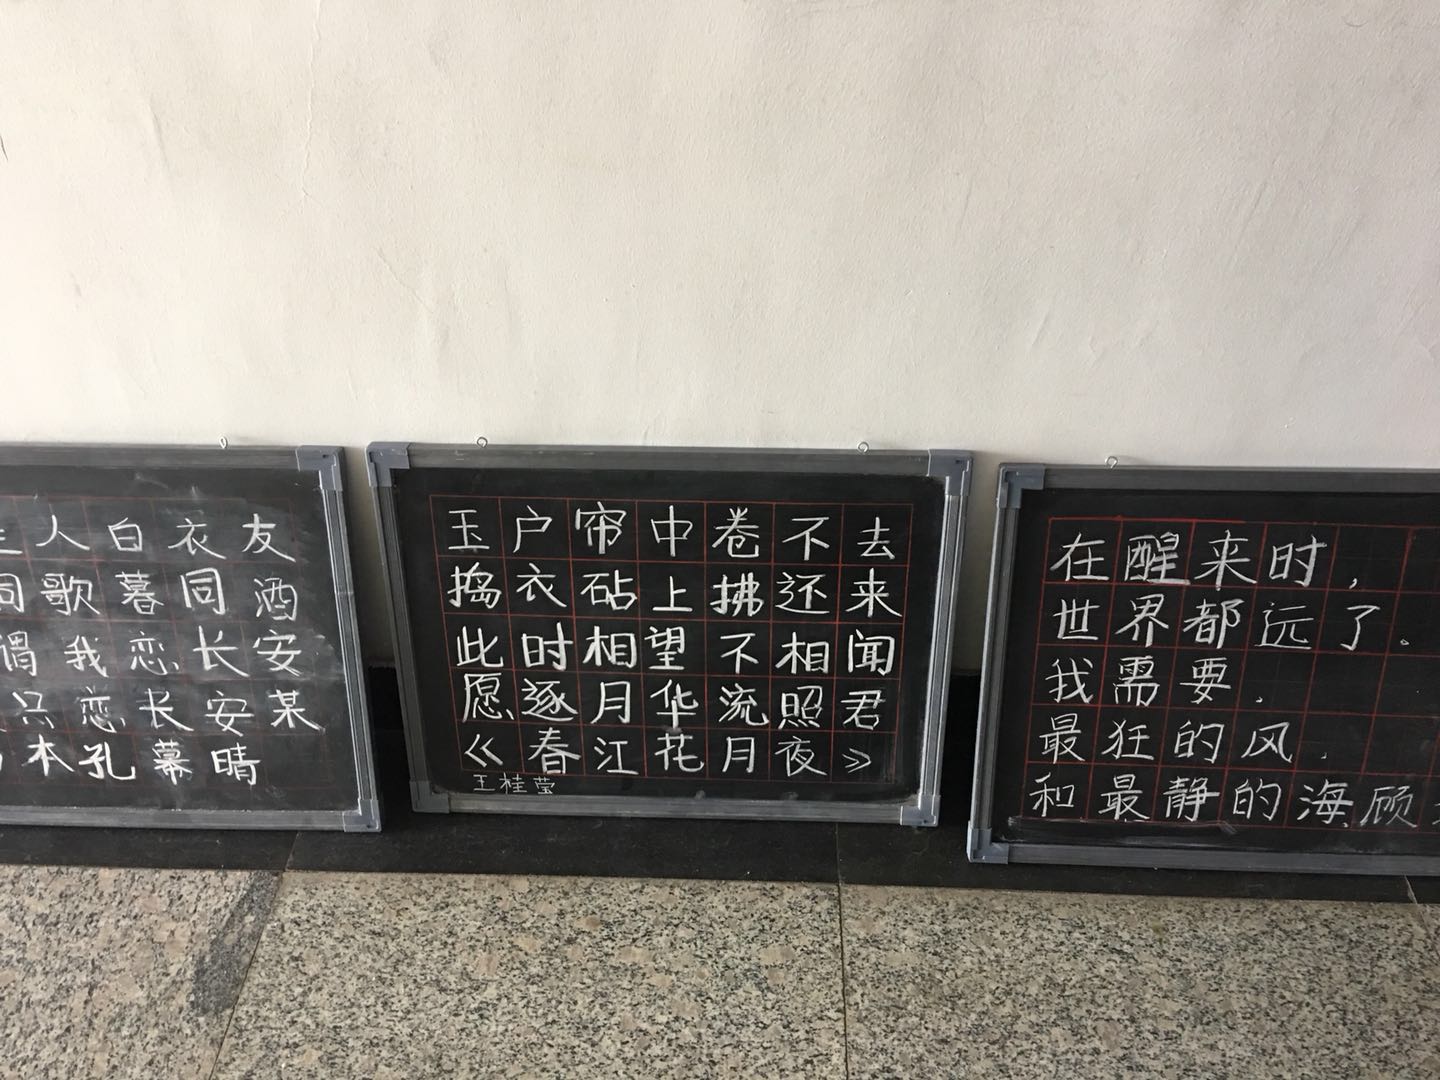 人白衣友
同歌暮同酒
谓我恋长安
只恋长安某
本孔幕晴
玉户帘中卷不去
捣衣砧上拂还来
此时相望不相闻
愿逐月华流照君
《春江花月夜》
王桂莹
在醒来时，
世界都远了。
我需要，
最狂的风，
和最静的海顾